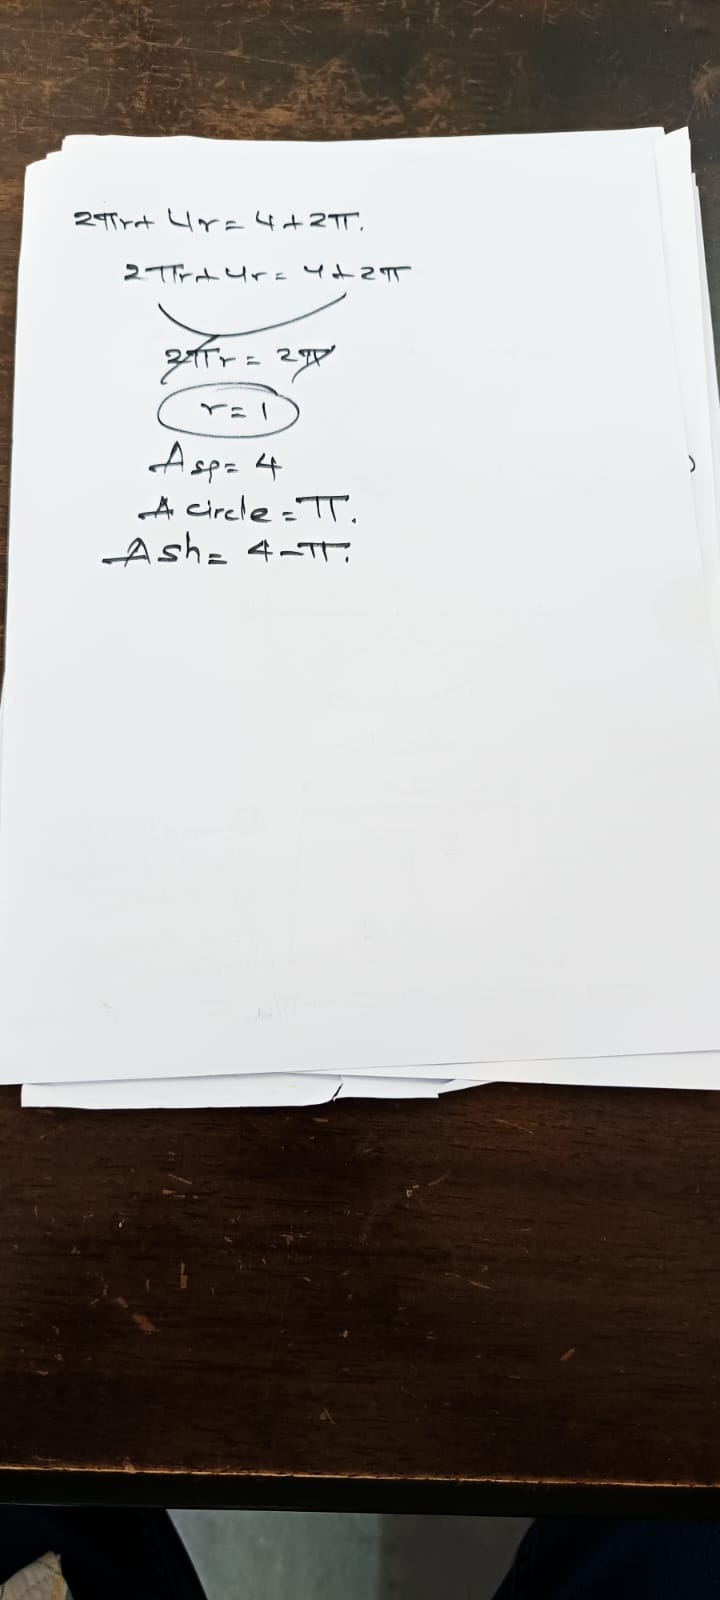 2πr+ 4r = 4+2π.
2πr+4r = 4+2π
2πr = 2π
r = 1
A sp = 4
A circle = π.
A sh = 4-π.